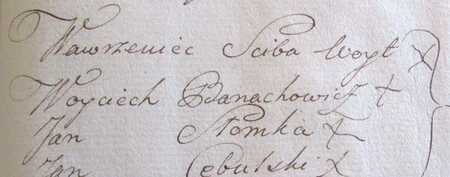 Wawrzeniec Sciba Woyt X
Woyciech Banachowicz X
Jan Słomka X
Jan Cebulski X